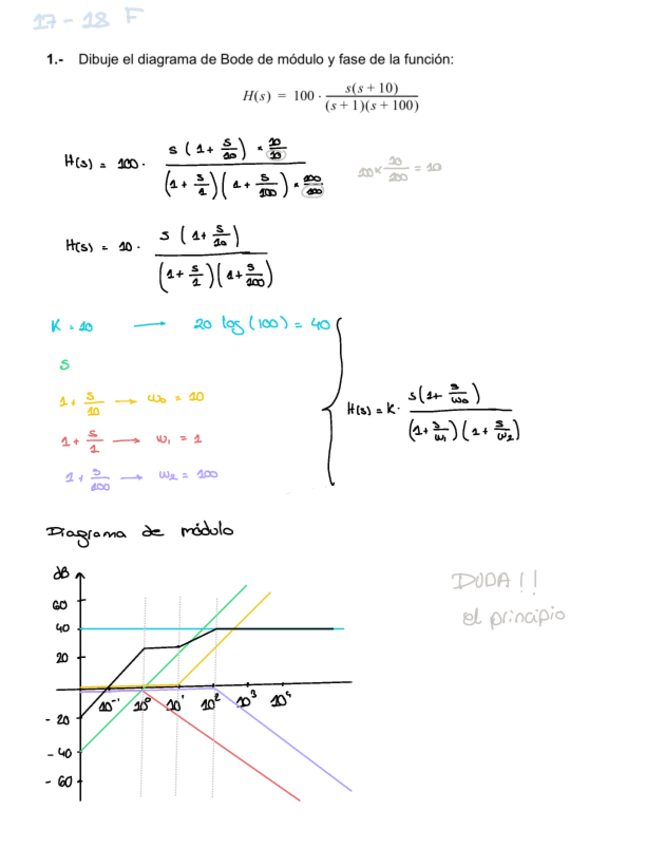 17 - 18 F
1.- Dibuje el diagrama de Bode de módulo y fase de la función:
H(s) = 100 · s(s + 10) / (s + 1)(s + 100)
H(s) = 100 · s (1 + s/10) · 10/10 / (1 + s/1)(1 + s/100) · 100/100
100 × 10/100 = 10
H(s) = 10 · s (1 + s/10) / (1 + s/1)(1 + s/100)
K = 10 → 20 log (100) = 40
s
1 + s/10 → ω₀ = 10
1 + s/1 → ω₁ = 1
1 + s/100 → ω₂ = 100
H(s) = K · s(1 + s/ω₀) / (1 + s/ω₁)(1 + s/ω₂)
Diagrama de módulo
dB
60
40
20
- 20
- 40
- 60
10⁻¹ 10⁰ 10¹ 10² 10³ 10⁴
DUDA!!
el principio